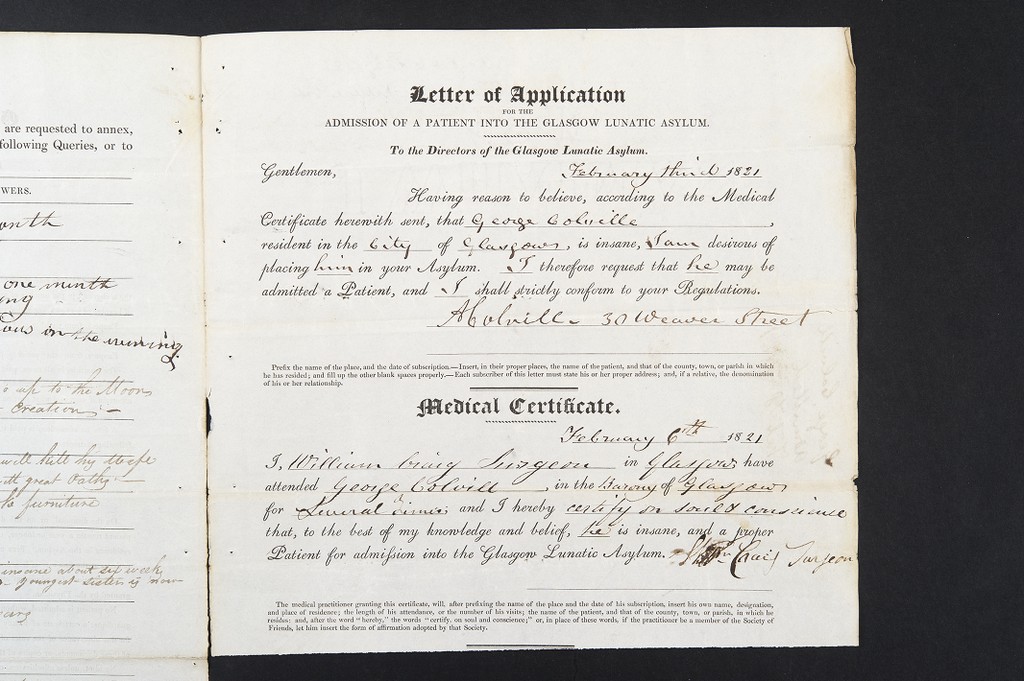 are requested to annex,
following Queries, or to
WERS.
onth
one month
ing
in the evening
up to the Moon
Creation —
will kill his Wife
with great Oaths —
furniture
insane about six weeks
youngest sister is now
Letter of Application
FOR THE
ADMISSION OF A PATIENT INTO THE GLASGOW LUNATIC ASYLUM.
To the Directors of the Glasgow Lunatic Asylum.
Gentlemen, February third 1821
Having reason to believe, according to the Medical
Certificate herewith sent, that George Colville,
resident in the City of Glasgow, is insane, I am desirous of
placing him in your Asylum. I therefore request that he may be
admitted a Patient, and I shall strictly conform to your Regulations.
A Colville 30 Weaver Street
Prefix the name of the place, and the date of subscription.—Insert, in their proper places, the name of the patient, and that of the county, town, or parish in which
he has resided; and fill up the other blank spaces properly.—Each subscriber of this letter must state his or her proper address; and, if a relative, the denomination
of his or her relationship.
Medical Certificate.
February 6th 1821
I, William Craig Surgeon in Glasgow have
attended George Colvill, in the Barony of Glasgow
for Several times and I hereby certify on soul & conscience
that, to the best of my knowledge and belief, he is insane, and a proper
Patient for admission into the Glasgow Lunatic Asylum. Wm Craig Surgeon
The medical practitioner granting this certificate, will, after prefixing the name of the place and the date of his subscription, insert his own name, designation,
and place of residence; the length of his attendance, or the number of his visits; the name of the patient, and that of the county, town, or parish, in which he
resides: and, after the word "hereby," the words "certify, on soul and conscience;" or, in place of these words, if the practitioner be a member of the Society of
Friends, let him insert the form of affirmation adopted by that Society.